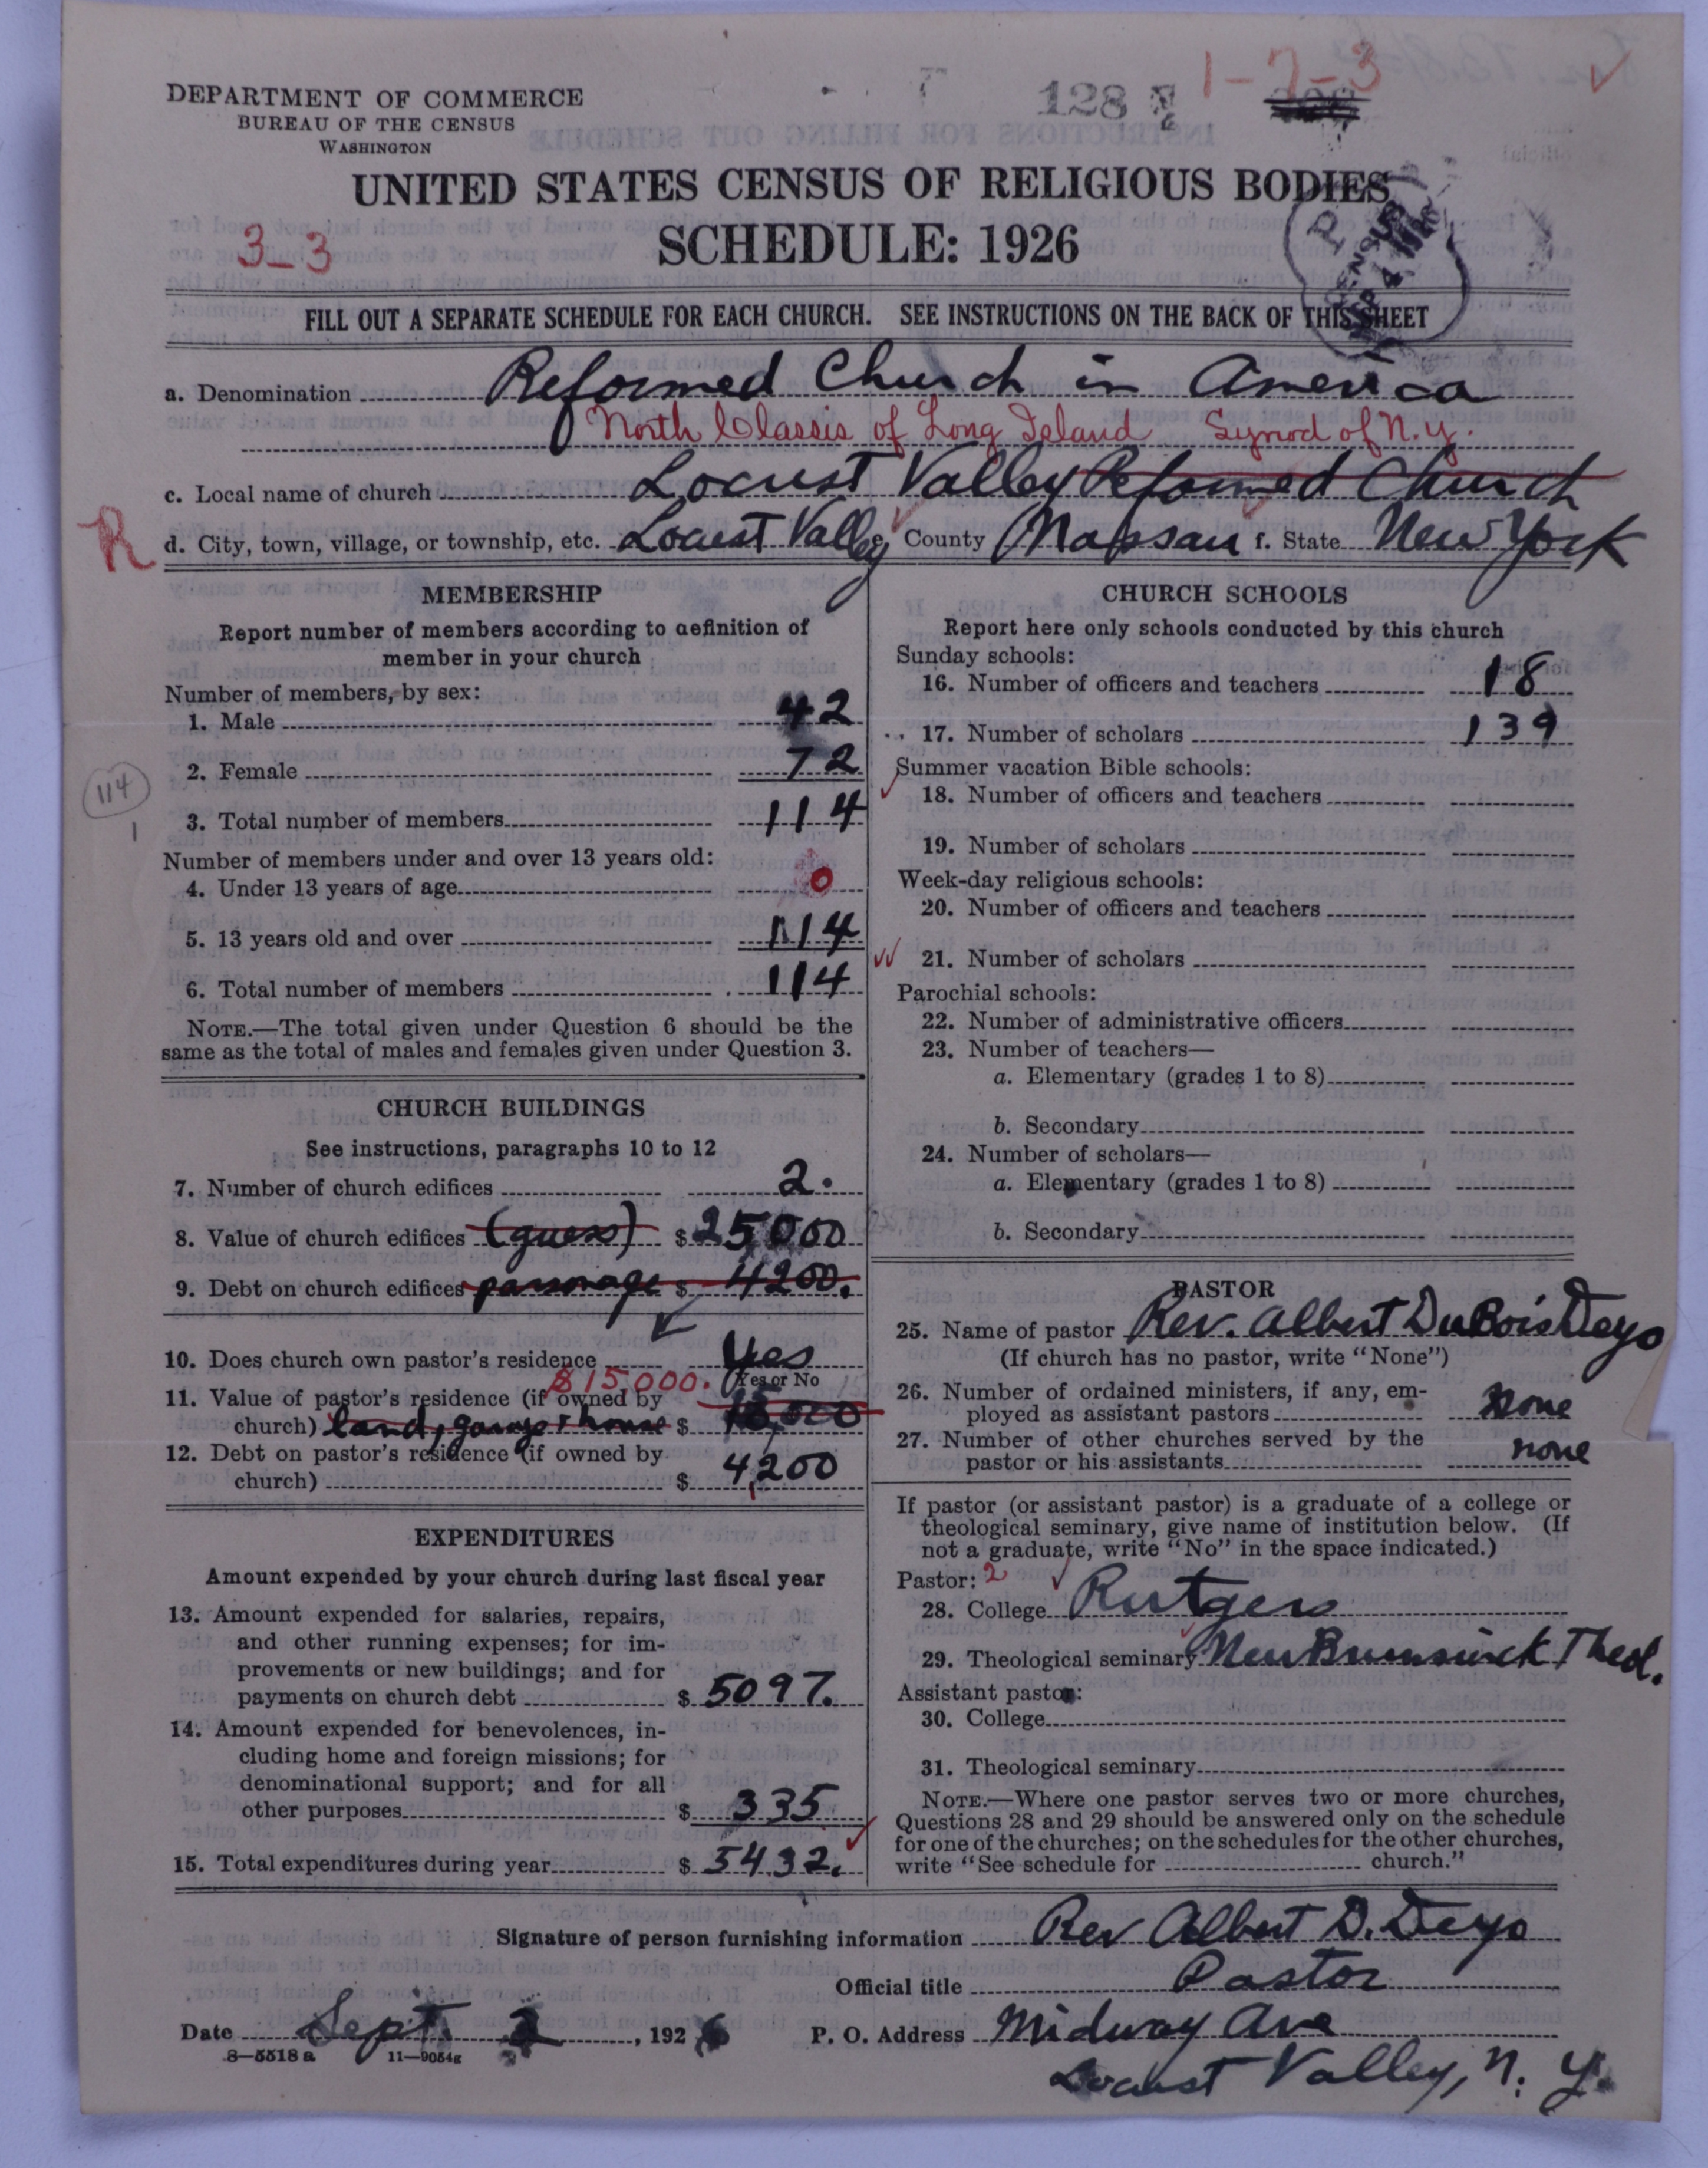 DEPARTMENT OF COMMERCE
BUREAU OF THE CENSUS
WASHINGTON
128
1-7-3
UNITED STATES CENSUS OF RELIGIOUS BODIES
3-3
SCHEDULE: 1926
FILL OUT A SEPARATE SCHEDULE FOR EACH CHURCH. SEE INSTRUCTIONS ON THE BACK OF THIS SHEET
a. Denomination Reformed Church in America
North Classis of Long Island Synod of N.Y.
c. Local name of church Locust Valley Reformed Church
R
d. City, town, village, or township, etc. Locust Valley e. County Nassau f. State New York
MEMBERSHIP
Report number of members according to definition of
member in your church
Number of members, by sex:
1. Male 42
2. Female 72
114
1
3. Total number of members 114
Number of members under and over 13 years old:
4. Under 13 years of age 0
5. 13 years old and over 114
6. Total number of members 114
NOTE.—The total given under Question 6 should be the
same as the total of males and females given under Question 3.
CHURCH BUILDINGS
See instructions, paragraphs 10 to 12
7. Number of church edifices 2.
8. Value of church edifices (guess) $ 25000
9. Debt on church edifices parsonage $ 4200.
10. Does church own pastor's residence Yes
Yes or No
$15000.
11. Value of pastor's residence (if owned by
church) land, garage & house $ 15,000
12. Debt on pastor's residence (if owned by
church) $ 4,200
EXPENDITURES
Amount expended by your church during last fiscal year
13. Amount expended for salaries, repairs,
and other running expenses; for im-
provements or new buildings; and for
payments on church debt $ 5097.
14. Amount expended for benevolences, in-
cluding home and foreign missions; for
denominational support; and for all
other purposes $ 335
15. Total expenditures during year $ 5432.
CHURCH SCHOOLS
Report here only schools conducted by this church
Sunday schools:
16. Number of officers and teachers 18
17. Number of scholars 139
Summer vacation Bible schools:
18. Number of officers and teachers
19. Number of scholars
Week-day religious schools:
20. Number of officers and teachers
21. Number of scholars
Parochial schools:
22. Number of administrative officers
23. Number of teachers—
a. Elementary (grades 1 to 8)
b. Secondary
24. Number of scholars—
a. Elementary (grades 1 to 8)
b. Secondary
PASTOR
25. Name of pastor Rev. Albert DuBois Deyo
(If church has no pastor, write "None")
26. Number of ordained ministers, if any, em-
ployed as assistant pastors None
27. Number of other churches served by the
pastor or his assistants none
If pastor (or assistant pastor) is a graduate of a college or
theological seminary, give name of institution below. (If
not a graduate, write "No" in the space indicated.)
Pastor: 2
28. College Rutgers
29. Theological seminary New Brunswick Theol.
Assistant pastor:
30. College
31. Theological seminary
NOTE.—Where one pastor serves two or more churches,
Questions 28 and 29 should be answered only on the schedule
for one of the churches; on the schedules for the other churches,
write "See schedule for church."
Signature of person furnishing information Rev Albert D. Deyo
Official title Pastor
Date Sept. 2, 1926
P. O. Address Midway Ave
8-5518a 11-9054g
Locust Valley, N. Y.